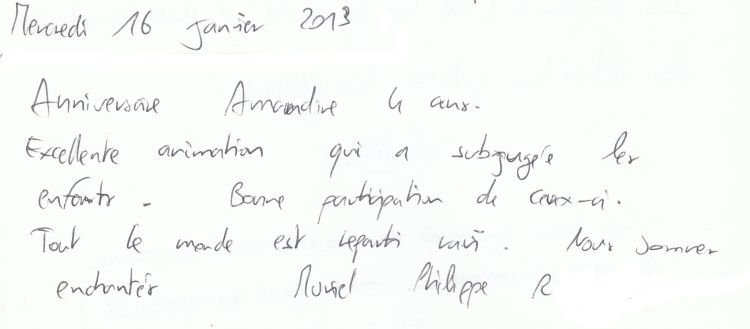 Mercredi 16 janvier 2013
Anniversaire Amandine 4 ans.
Excellente animation qui a subjugée les
enfants. Bonne participation de ceux-ci.
Tout le monde est reparti ravi. Nous sommes
enchantés Muriel Philippe R